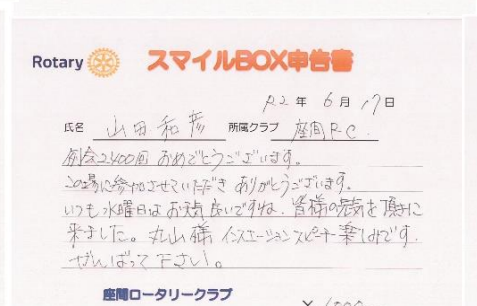 Rotary スマイルBOX申告書
R2 年 6 月 17 日
氏名 山田和彦 所属クラブ 座間RC.
例会2400回 おめでとうございます。
この場に参加させていただき ありがとうございます。
いつも水曜日はお天気良いですね、皆様の元気を頂きに
来ました。丸山様 インスエーションスピーチ楽しみです。
がんばって下さい。
座間ロータリークラブ